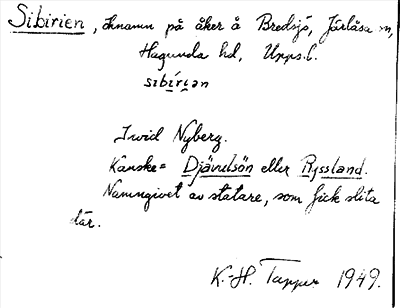 Sibirien, öknamn på åker å Bredsjö, Järlåsa sn,
Hagunda hd, Upps.l.
sibírian
Ivid Nyberg.
Kanske = Djävulsön eller Ryssland.
Namngivet av statare, som fick slita
där.
K.-H. Tapper 1949.